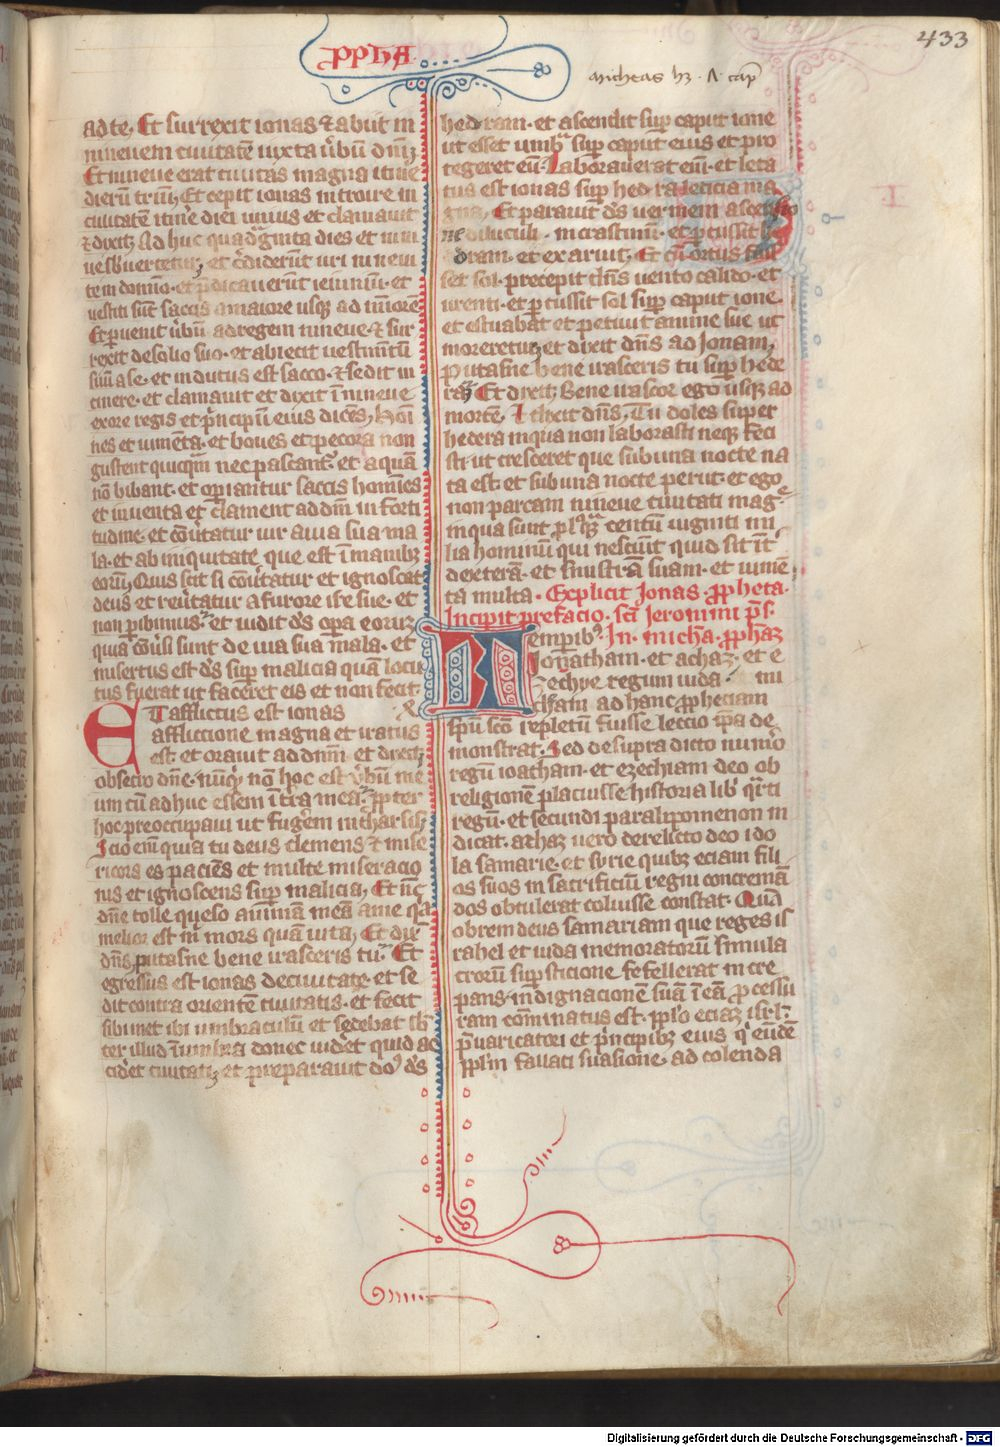 PPHA
433
micheas hȝ · ʌ · cap̄
ad te. Et surrexit ionas ⁊ abiit in
nineuem ciuitatē iuxta v̓bū dn̄i
Et niniue erat ciuitas magna itine
dierū triū. Et cepit ionas introire in
ciuitatē itin̓e diei unius et clamauit
⁊ dixit. Ad huc quadͣginta dies et nini
ue sb̓uertetur et c̓diderūt uiri niniui
te in domino. et p̓dicauerūt ieiuniū. et
uestiti sūt saccis a maiore usqꝫ ad mīorē
Et puenit v̓bū ad regem niniue. ⁊ sur
rexit de solio suo. et abiecit uestimtū
suū a se. et indutus est sacco. ⁊ sedit in
cinere. et clamauit et dixit ī niniue
ex ore regis et p̓ncipū eius dicēs. Hoī
nes et iumēta. et boues et pecora non
gustent quicqͣm nec pascant̓. et aquā
nō bibant. et opiantur saccis homīes
et iumenta et clament ad dm̄ in forti
tudine. et cōūtatur uir a uia sua ma
la. et ab iniquitate que est ī manibꝫ
eorū. Quis scit si conūtatur et ignoscat
deus et reūtatur a furore ire sue. et
non pibimus. et uidit ds̄ opa eorum
quia cōūsi sunt de uia sua mala. et
misertus est ds̄ sup malicia quā locu
tus fuerat ut faceret eis et non fecit.
ET afflictus est ionas
afflictione magna et iratus
est. et orauit ad dnm̄ et dixit
obsecro dn̄e. nūqͥd nō hoc est v̓bū me
um cū adhuc essem ī t̓ra mea. ꝓpter
hoc preoccupaui ut fugerem in tharsis
Scio em̄ quia tu deus clemens ⁊ mise
ricors es paciēs et multe miseracio
nis et ignoscens sup malicia. Et nūc
dn̄e tolle queso animam meā a me qͥa
melior est m̓ mors quā uita. Et dix̄
dn̄s putasne bene irasceris tu. Et
egressus est ionas de ciuitate. et se
dit contra orientē ciuitatis. et fecit
sibimet ibi umbraculū et sedebat sb̓
ter illud ī umbra donec uidet quid ac
cidet ciuitati. et preparauit do dš
hederam. et ascendit sup caput ione
ut esset umbͣ sup caput eius et pro
tegeret eū. laborauerat em̄. et leta
tus est ionas sup hedera leticia ma
gna. Et parauit ds̄ uermem ascensio
ne diluculi. in crastinū. et pcussit he
deram. et exaruit. Et cū ortus fuis
set sol. precepit dn̄s uento calido. et
urenti. et pcussit sol sup caput ione
et estuabat et petiuit anime sue ut
moreretur et dixit dn̄s ad Jonam.
Putasne bene irasceris tu sup hede
ra. Et dixit. Bene irascor ego usqꝫ ad
mortē. Et dixit dn̄s. Tu doles super
hedera in qua non laborasti neqꝫ feci
sti ut cresceret que sub una nocte na
ta est. et sub una nocte periit. et ego
non parcam niniue ciuitati mag
in qua sunt plusqͣ centū uiginti mi
lia hominū qui nesciūt quid sit īt̓
dexterā. et sinistrā suam. et iumē
ta multa. Explicit Jonas ꝓpheta.
Incipit prefacio. Sc̄i Jeronimi ps̄.
In. micha. ꝓphaȝ
Temporibꝰ
ionatham. et achaz. et e
zechye regum iuda. mi
cheam ad hanc ꝓpheciam
spū sco̅ repletū fuisse leccio ipa de
monstrat. Sed de supra dicto num̓o
regū ioatham. et ezechiam deo ob
religionē placuisse historia lib̓ qͣrti
regū. et secundi paralipomenon in
dicat. achaz uero derelicto deo ido
la samarie. et syrie quibꝫ eciam fili
os suos in sacrificiū regni concremā
dos obtulerat coluisse constat. Quā
ob rem deus samariam que reges is
rahel et iuda memoratorū simula
crorū supsticione fefellerat incre
pans. indignacionē suā ī eā ꝓcessu
ram cōminatus est. pplo eciaȝ isrl̄.
p̄uaricatori et p̓ncipibꝫ eius qͥ eūdē
pplm̄ sauati suasione. ad colenda
Digitalisierung gefördert durch die Deutsche Forschungsgemeinschaft - DFG